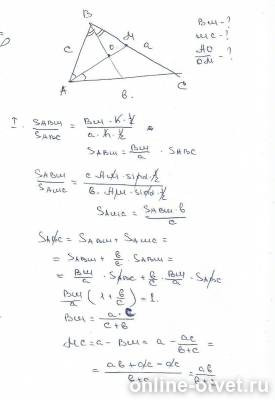 B
M
BM - ?
MC - ?
AO/OM - ?
c
O
a
A
b
C
I. S_ABM / S_ABC = BM · K · ½ / a · K · ½
S_ABM = BM/a · S_ABC
S_ABM / S_AMC = c · AM · sinα · ½ / b · AM · sinα · ½
S_AMC = S_ABM · b / c
S_ABC = S_ABM + S_AMC =
= S_ABM + b/c · S_ABM =
= BM/a · S_ABC + b/c · BM/a · S_ABC
BM/a (1 + b/c) = 1.
BM = a · c / c + b
MC = a - BM = a - ac / b+c =
= ab + ac - ac / b+c = ab / b+c
online-otvet.ru